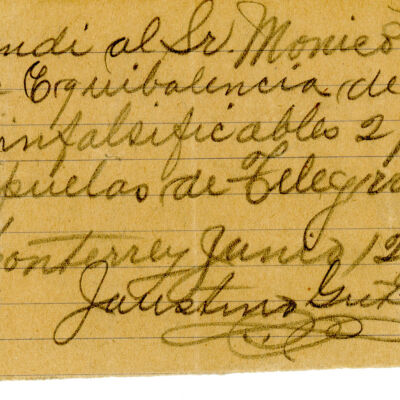 ndi al Sr. Monico
Equibalencia de
infalsificables 2
puelas de Telegra
onterrey Junio 12
Faustino Gut